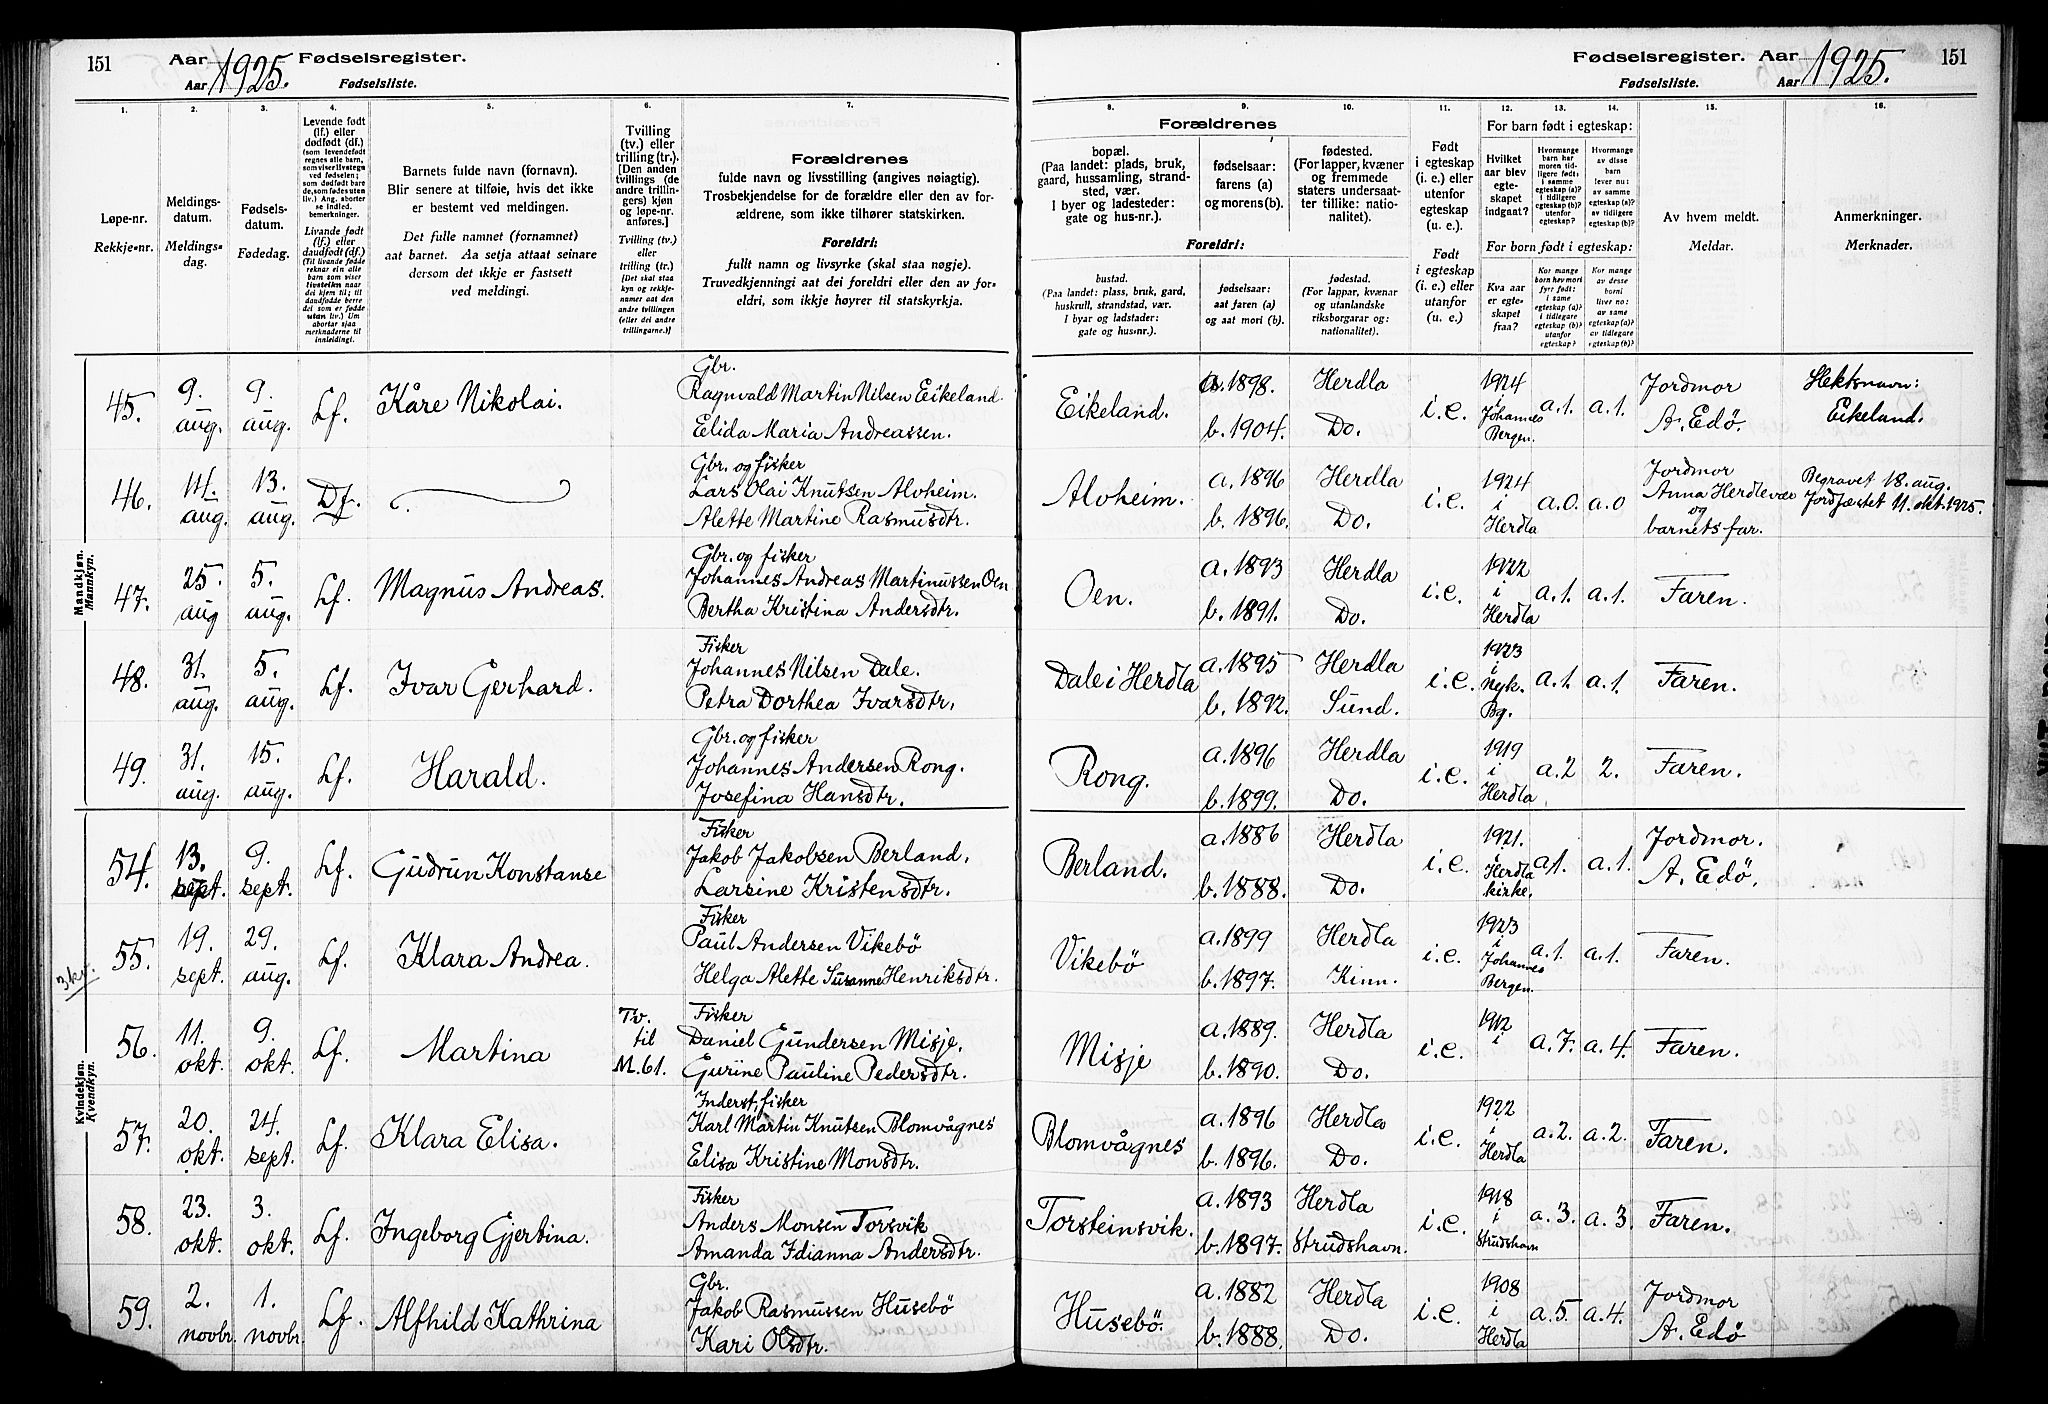 151
Aar 1925. Fødselsregister.
Aar Fødselsliste.
Fødselsregister. Aar 1925.
Fødselsliste. Aar
151
1.
Løpe-nr.
Rekkje-nr.
2.
Meldings-
datum.
Meldings-
dag.
3.
Fødsels-
datum.
Fødedag.
4.
Levende født
(lf.) eller
dødfødt (df.)
(som levendefødt
regnes alle barn,
som viser livstegn
ved fødselen;
som dødfødt bare
de, som fødes uten
liv.) Ang. aborter
se indled.
bemerkninger.
Livande født
(lf.) eller
daudfødt (df.)
(Til livande fødde
reknar ein alle
barn som viser
livsteikn naar
dei kjem til; til
daudfødde berre
dei som er fødde
utan liv.) Um
abortar sjaa
merknaderne til
innleidingi.
5.
Barnets fulde navn (fornavn).
Blir senere at tilføie, hvis det ikke
er bestemt ved meldingen.
Det fulle namnet (fornamnet)
aat barnet. Aa setja attaat seinare
dersom det ikkje er fastsett
ved meldingi.
6.
Tvilling
(tv.) eller
trilling (tr.).
[Den anden
tvillings (de
andre trillin-
gers) kjøn
og løpe-nr.
anføres.]
Tvilling (tv.)
eller
trilling (tr.)
[Det skal staa
kyn og rekkje-
numer aat den
andre tvillingen
(eller dei andre
trillingarne.)]
7.
Forældrenes
fulde navn og livsstilling (angives nøiagtig).
Trosbekjendelse for de forældre eller den av for-
ældrene, som ikke tilhører statskirken.
Foreldri:
fullt namn og livsyrke (skal staa nøgje).
Truvedkjenningi aat dei foreldri eller den av for-
eldri, som ikkje høyrer til statskyrkja.
8.
Forældrenes
bopæl.
(Paa landet: plads, bruk,
gaard, hussamling, strand-
sted, vær.
I byer og ladesteder:
gate og hus-nr.).
Foreldri:
bustad.
(Paa landet: plass, bruk, gard,
huskrull, strandstad, vær.
I byar og ladstader:
gate og hus-nr.).
9.
fødselsaar:
farens (a)
og morens (b).
fødselsaar:
aat faren (a)
og aat mori (b).
10.
fødested.
(For lapper, kvæner
og fremmede
staters undersaat-
ter tillike: natio-
nalitet).
fødestad.
(For lappar, kvænar
og utanlandske
riksborgarar og:
nationalitet).
11.
Født
i egteskap
(i. e.) eller
utenfor
egteskap
(u. e.).
Født
i egteskap
(i. e.) eller
utanfor
egteskap
(u. e.)
For barn født i egteskap:
12.
Hvilket
aar blev
egte-
skapet
indgaat?
For born født i egteskap:
Kva aar
er egte-
skapet
fraa?
13.
Hvormange
barn har
moren tid-
ligere født:
i samme
egteskap (a)?
i tidligere
egteskap (b)?
utenfor
egteskap?
Kor mange
born hev mori
fyrr født:
i same
egteskap (a)?
i tidlegare
egteskap (b)?
utanfor
egteskap?
14.
Hvormange
av disse
barn
lever nu:
av samme
egteskap (a)?
av tidligere
egteskap (b)?
Kor mange
av desse
borni
liver no:
av same
egteskap (a)?
av tidlegare
egteskap (b)?
15.
Av hvem meldt.
Meldar.
16.
Anmerkninger.
Merknader.
Mandkjøn.
Mannkyn.
45. 9. aug. 9. aug. Lf. Kåre Nikolai.
Gbr.
Ragnvald Martin Nilsen Eikeland.
Elida Maria Andreassen.
Eikeland. a. 1898. b. 1904. Herdla Do. i.e. 1924 i Johannes Bergen. a.1. a.1. Jordmor A. Edø. Slektsnavn: Eikeland.
46. 14. aug. 13. aug. Df.
Gbr. og fisker
Lars Olai Knutsen Alvheim.
Alette Martine Rasmusdtr.
Alvheim. a. 1896 b. 1896. Herdla Do. i.e. 1924 i Herdla a.0. a.0 Jordmor Anna Herdlevær og barnets far. Begravet 18. aug. Jordfæstet 11. okt. 1925.
47. 25. aug 5. aug. Lf. Magnus Andreas.
Gbr. og fisker
Johannes Andreas Martinussen Oen
Bertha Kristina Andersdtr.
Oen. a. 1893 b. 1891. Herdla Do. i.e. 1922 i Herdla a.1. a.1. Faren.
48. 31. aug. 5. aug. Lf. Ivar Gerhard.
Fisker
Johannes Nilsen Dale.
Petra Dorthea Ivarsdtr.
Dale i Herdla a. 1895 b. 1892. Herdla Sund. i.e. 1923 i Nyk. Bg. a.1. a.1. Faren.
49. 31. aug. 15. aug. Lf. Harald.
Gbr. og fisker
Johannes Andersen Rong.
Josefina Hansdtr.
Rong. a. 1896 b. 1899. Herdla Do. i.e. 1919 i Herdla a.2 2. Faren.
3 kv.
Kvindekjøn.
Kvendkyn.
54. 13. sept. 9. sept. Lf. Gudrun Konstanse
Fisker
Jakob Jakobsen Berland.
Larsine Kristensdtr.
Berland. a. 1886 b. 1888. Herdla Do. i.e. 1921. i Herdla kirke. a.1. a.1. Jordmor. A. Edø.
55. 19. sept. 29. aug. Lf. Klara Andrea.
Fisker
Paul Andersen Vikebø
Helga Alette Susanne Henriksdtr.
Vikebø a. 1899 b. 1897. Herdla Kinn. i.e. 1923 i Johannes Bergen. a.1. a.1. Faren.
56. 11. okt. 9. okt. Lf. Martina Tv. til M.61.
Fisker
Daniel Gundersen Misje.
Gurine Pauline Pedersdtr.
Misje a. 1889. b. 1890. Herdla Do. i.e. 1912 i a.7. a.4. Faren.
57. 20. okt. 24. sept. Lf. Klara Elisa.
Inderst, fisker
Karl Martin Knutsen Blomvågnes
Elisa Kristine Monsdtr.
Blomvågnes a. 1896 b. 1896. Herdla Do. i.e. 1922 i Herdla a.2. a.2. Faren.
58. 23. okt. 3. okt. Lf. Ingeborg Gjertina.
Fisker
Anders Monsen Torsvik
Amanda Idianna Andersdtr.
Torsteinsvik. a. 1893 b. 1897. Herdla Strudshavn. i.e. 1918 i Strudshavn a.3. a.3. Faren.
59. 2. novbr. 1. novbr. Lf. Alfhild Kathrina
Gbr.
Jakob Rasmussen Husebö
Kari Olsdtr.
Husebö. a. 1882 b. 1888. Herdla Do. i.e. 1908 i Herdla a.5. a.4. Jordmor A. Edø